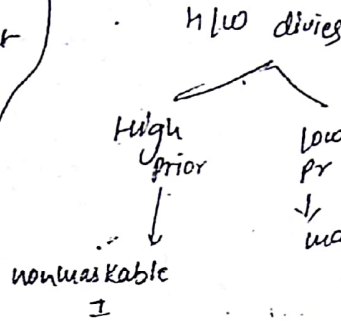 r
H/W divies
High
prior
low
pr
ma
nonmaskable
I